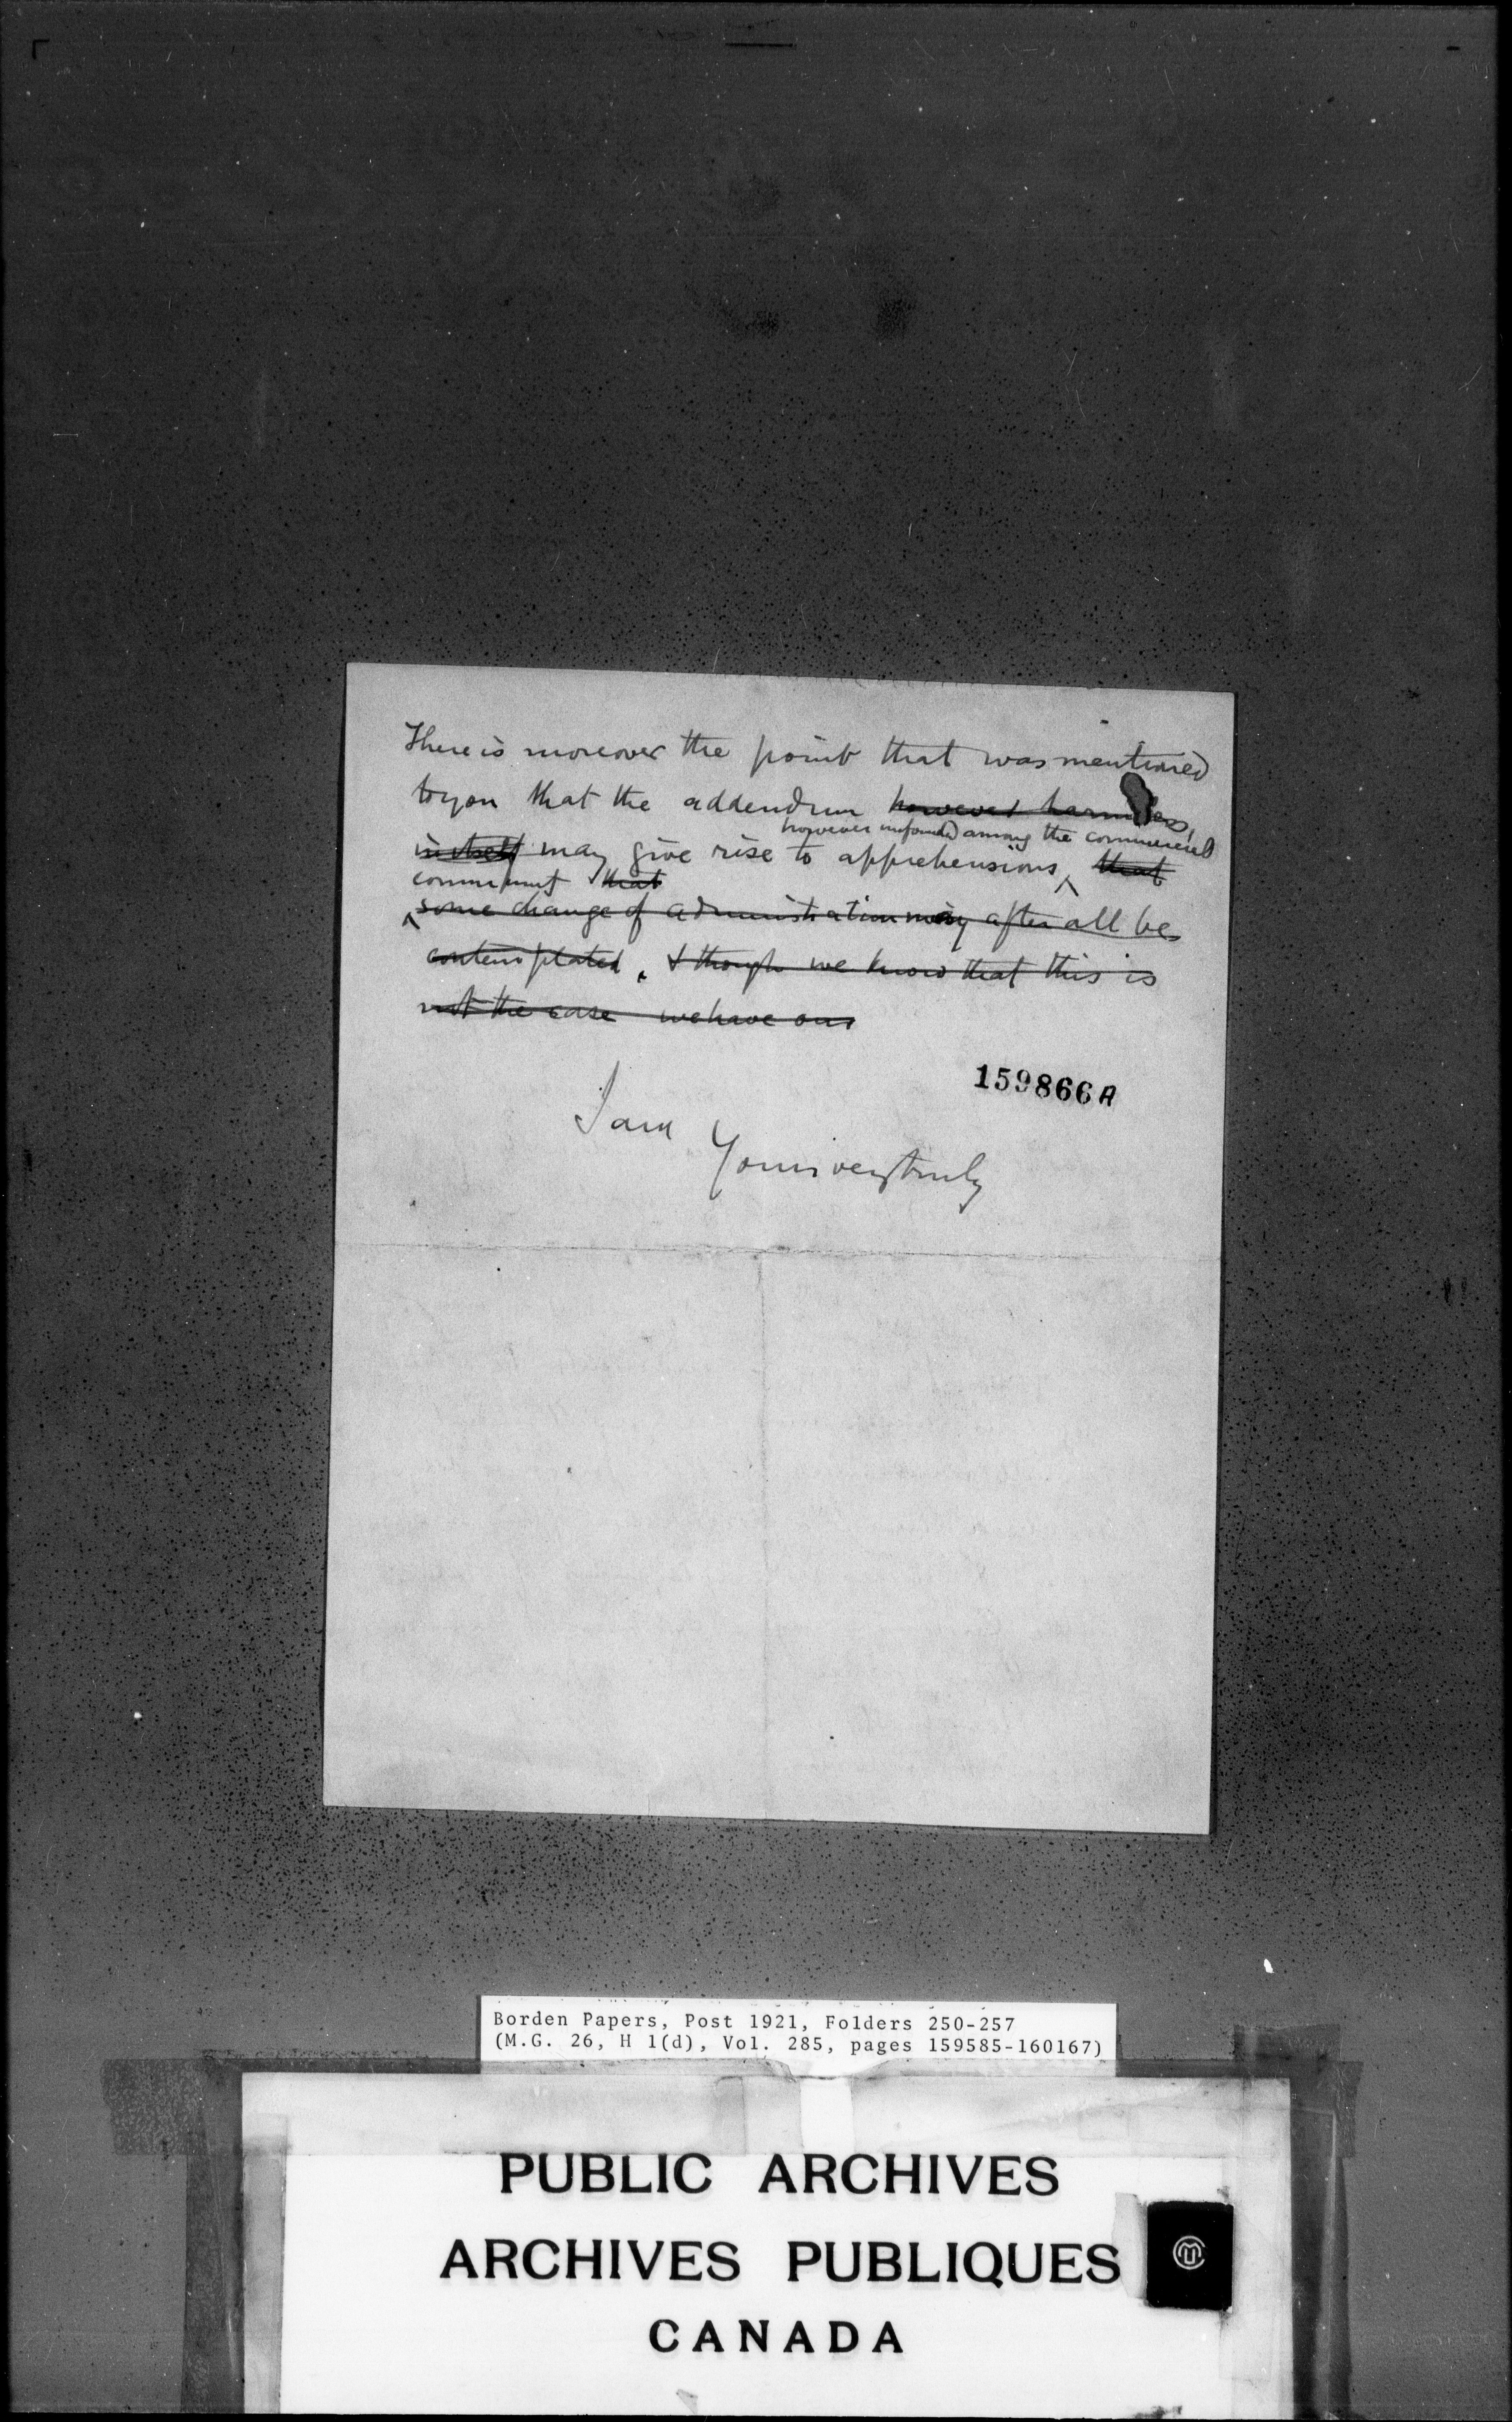 There is moreover the point that was mentioned
to you that the addendum however harmless,
however unfounded among the commercial
in itself may give rise to apprehensions ^ that
community that
^ some change of administration may after all be
contemplated. & though we know that this is
not the case we have our
159866A
I am
Yours very truly
Borden Papers, Post 1921, Folders 250-257
(M.G. 26, H 1(d), Vol. 285, pages 159585-160167)
PUBLIC ARCHIVES
ARCHIVES PUBLIQUES
CANADA